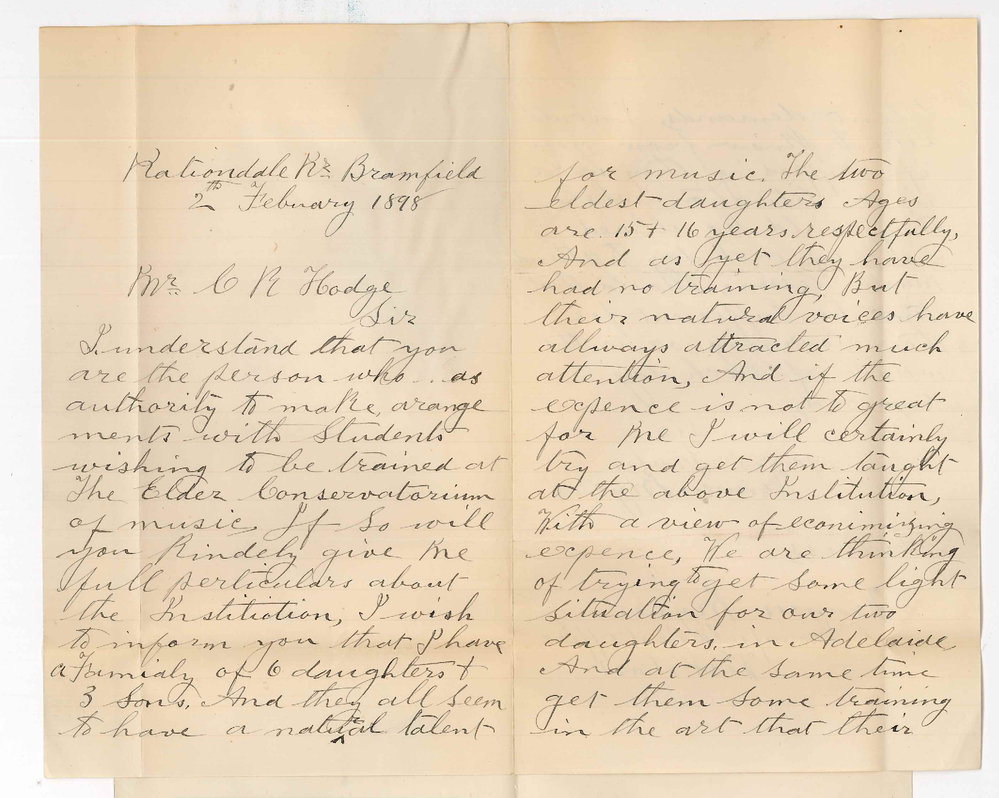 Rationdale Nr. Bramfield
2th Febuary 1898
Mr. C R Hodge
Sir
I understand that you
are the person who .. as
authority to make, arange
ments with Students
wishing to be trained at
The Elder Conservatorium
of music If So will
you Kindely give me
full perticulars about
the Institiotion, I wish
to inform you that I have
a Famialy of 6 daughters +
3 Sons. And they all seem
to have a natural talent
for music. The two
eldest daughters Ages
are 15 + 16 years respectfully,
And as yet they have
had no training, But
their natural voices have
allways attracled much
attention, And if the
expence is not to great
for me I will certainly
try and get them taught
at the above Institution,
With a view of econimizing
expence, We are thinking
of trying to get Some light
Situation for our two
daughters. in Adelaide
And at the Same time
get them Some training
in the art that their